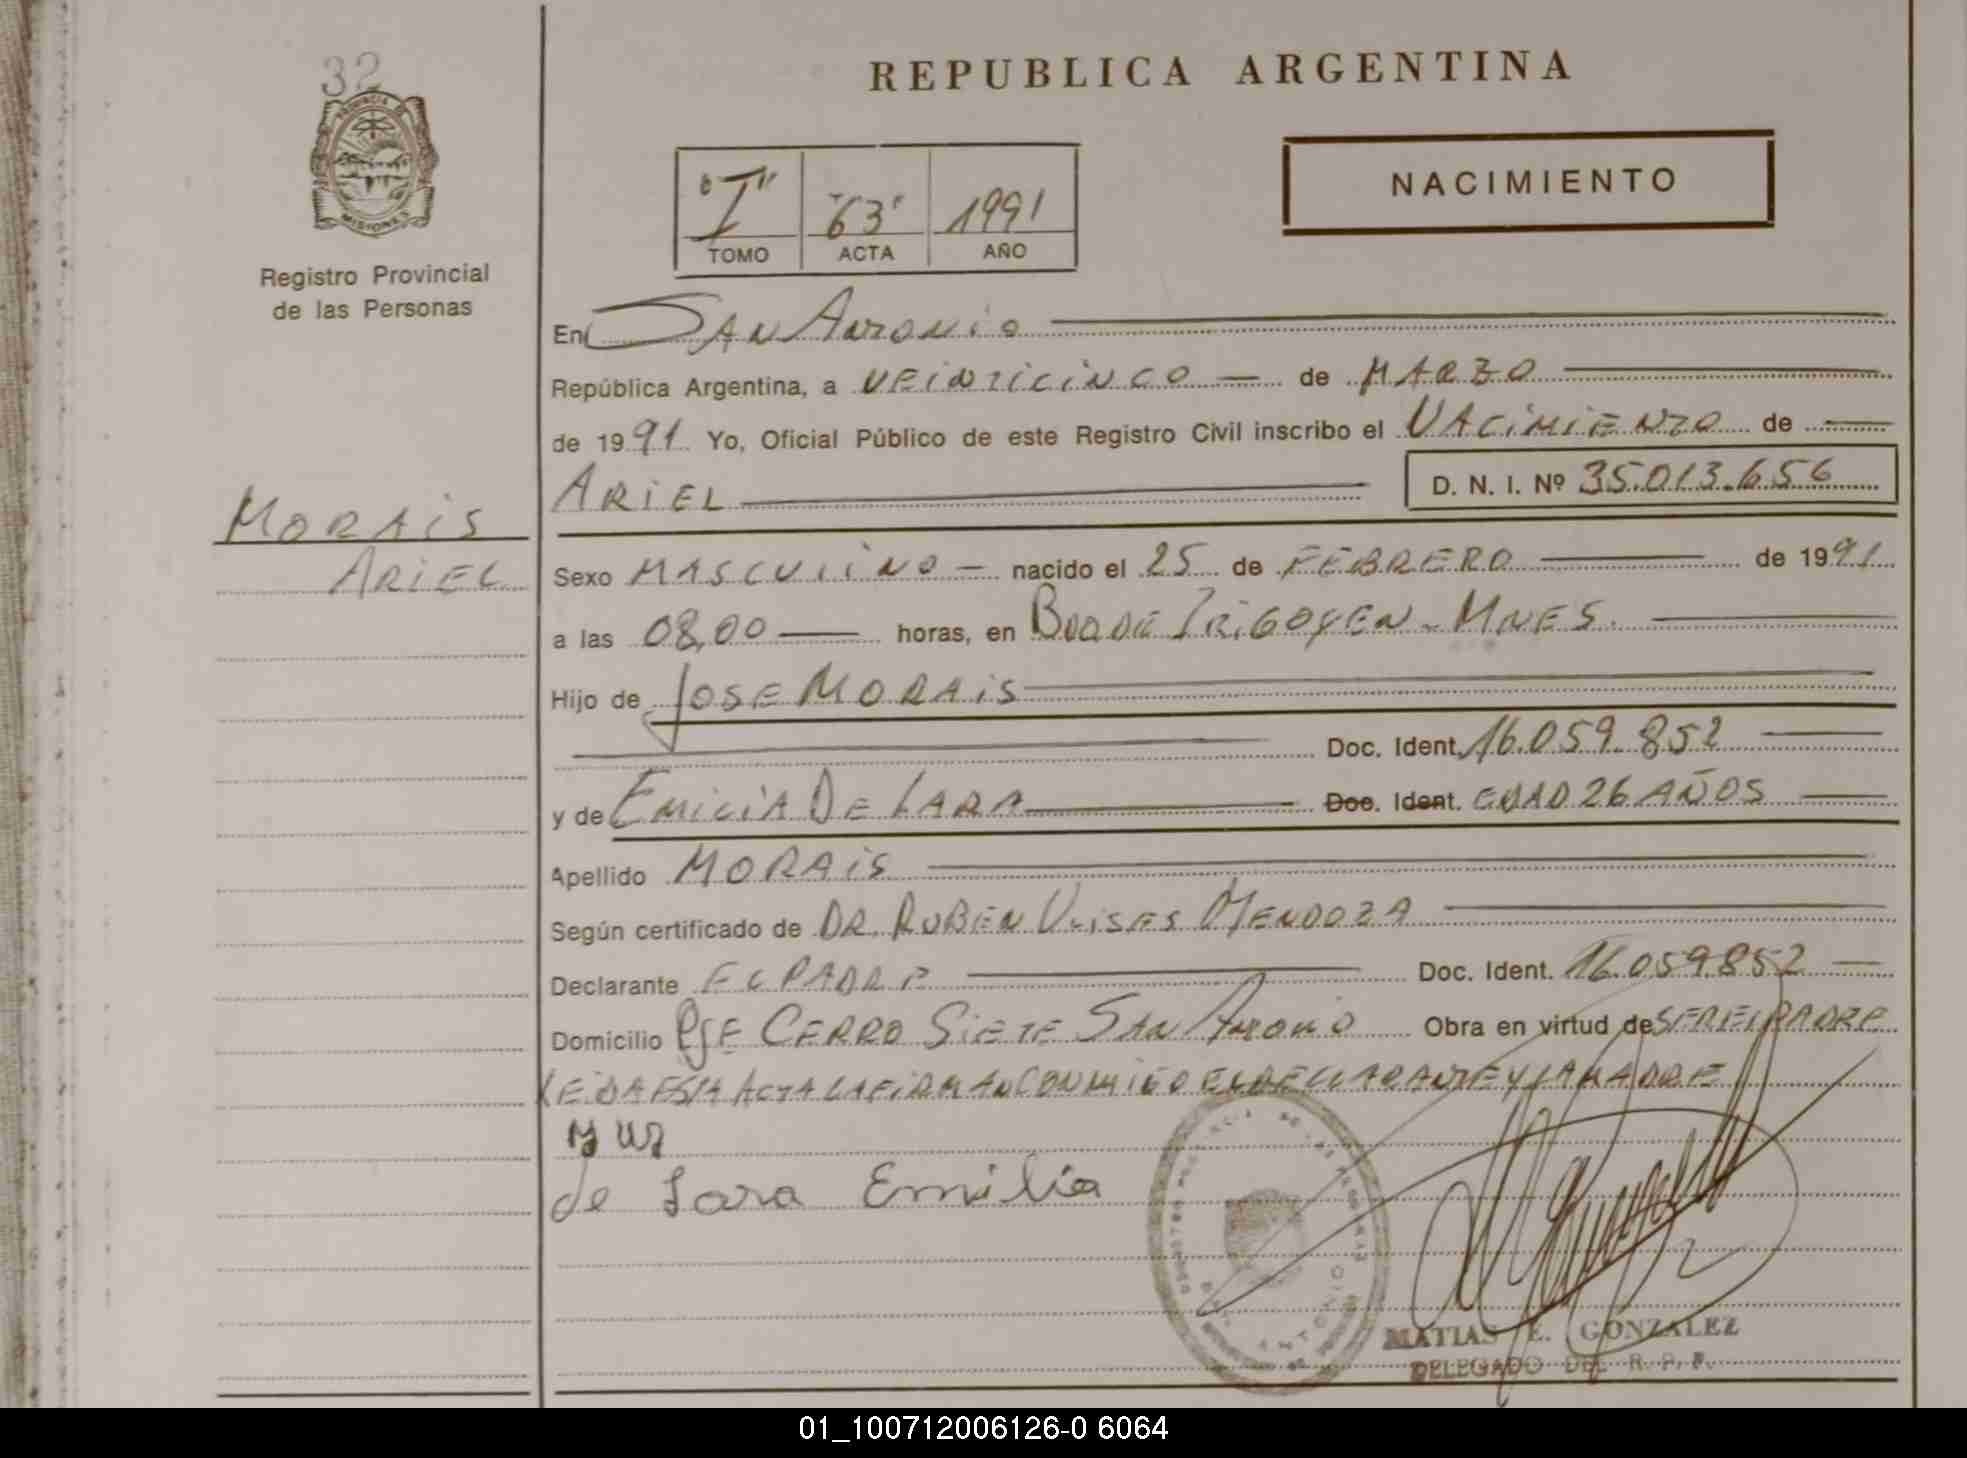 32
PROVINCIA DE
MISIONES
Registro Provincial
de las Personas
MORAIS
ARIEL
REPUBLICA ARGENTINA
"I" "63" 1991
TOMO ACTA AÑO
NACIMIENTO
En SAN ANTONIO
República Argentina, a VEINTICINCO de MARZO
de 1991 Yo, Oficial Público de este Registro Civil inscribo el NACIMIENTO de
ARIEL D. N. I. Nº 35.013.656
Sexo MASCULINO nacido el 25 de FEBRERO de 1991
a las 08,00 horas, en BDO DE IRIGOYEN - MNES.
Hijo de JOSE MORAIS
Doc. Ident. 16.059.852
y de EMILIA DE LARA Doc. Ident. EDAD 26 AÑOS
Apellido MORAIS
Según certificado de DR. RUBEN ULISES MENDOZA
Declarante EL PADRE Doc. Ident. 16.059852
Domicilio PJE CERRO SIETE SAN ANTONIO Obra en virtud de SER EL PADRE
LEIDA ESTA ACTA LA FIRMAN CONMIGO EL DECLARANTE Y LA MADRE
de Lara Emilia
MATIAS E. GONZALEZ
DELEGADO DEL R. P. P.
01_100712006126-0 6064